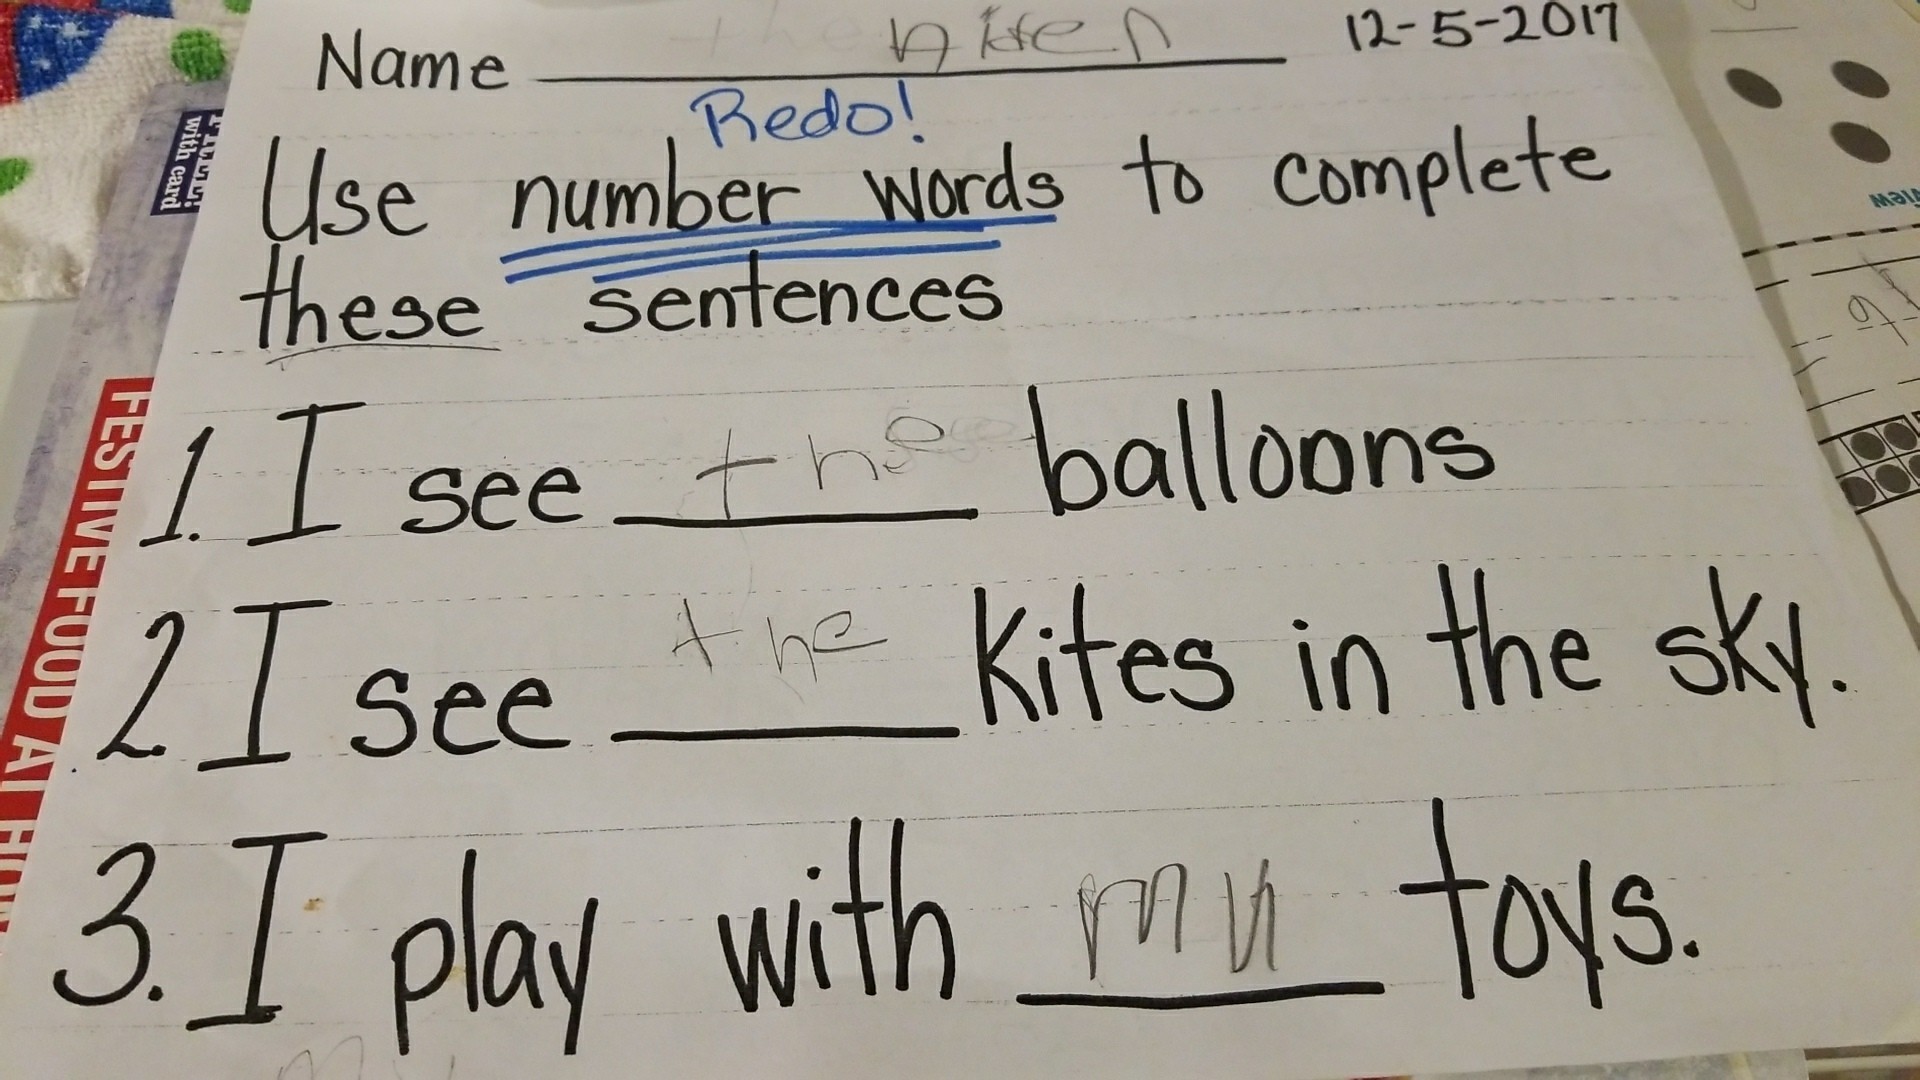 Name 12-5-2017
Redo!
Use number words to complete
these sentences
1. I see the balloons
2 I see the kites in the sky.
3. I play with my toys.
with card
FESTIVE FOOD AT